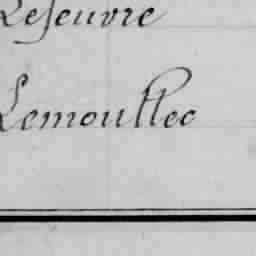 Lefeuvre
Lemoullec